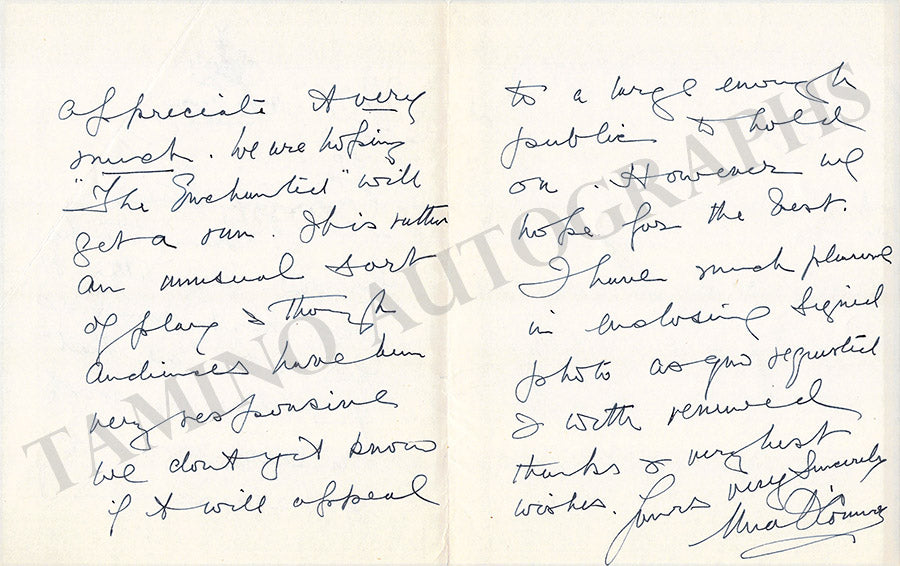 appreciate it very
much. We are hoping
"The Enchanted" will
get a run. This rather
an unusual sort
of play & though
audiences have been
very responsive
we dont yet know
if it will appeal
to a large enough
public to hold
on. However we
hope for the best.
I have much pleasure
in enclosing signed
photo as you requested
& with renewed
thanks & very best
wishes. Yours very sincerely
Una O'Connor
TAMINO AUTOGRAPHS